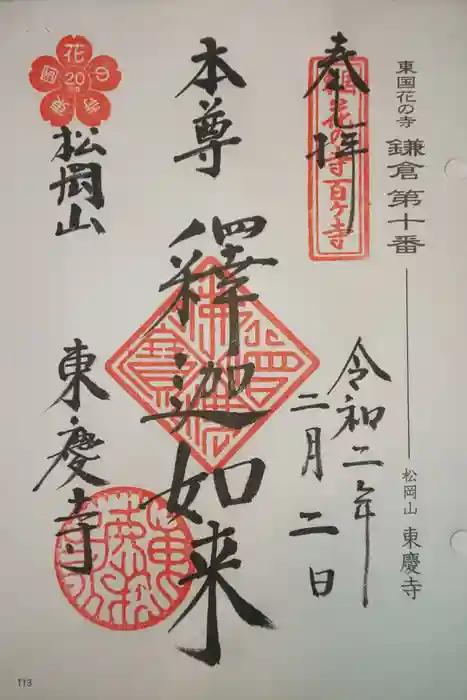 東国花の寺 鎌倉 第十番
松岡山 東慶寺
奉拝
東国花の寺百ヶ寺
令和二年
二月二日
本尊
釋迦如来
花の寺
20
松岡山
東慶寺
113